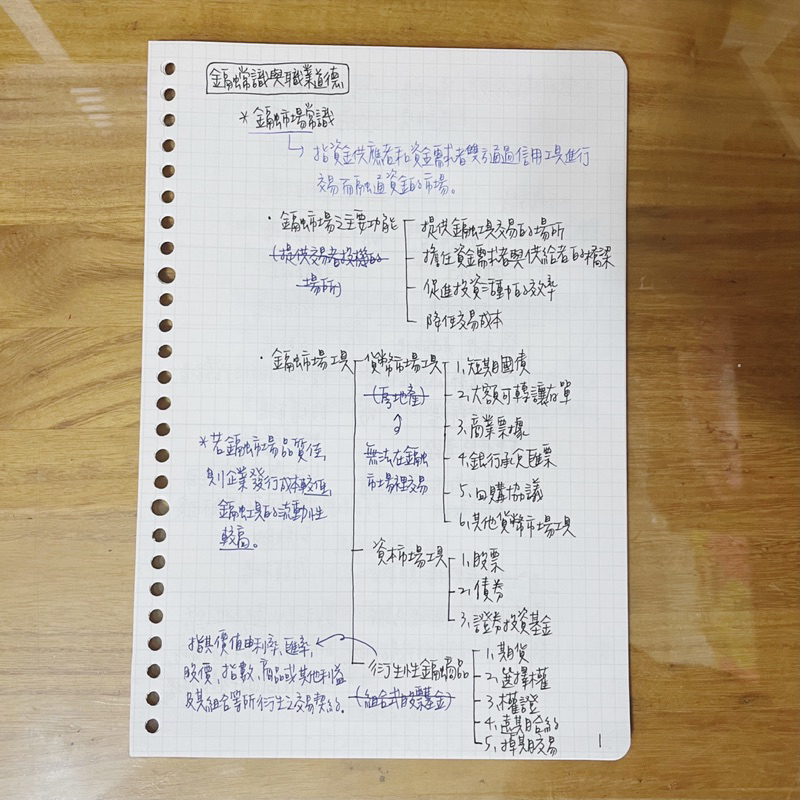 金融常識與職業道德
*金融市場常識
↳指資金供應者和資金需求者雙方通過信用工具進行
交易而融通資金的市場。
·金融市場之主要功能
(提供交易者投機的
場所)
提供金融工具交易的場所
擔任資金需求者與供給者的橋梁
促進投資活動的效率
降低交易成本
·金融市場工具
貨幣市場工具
(房地產)
無法在金融
市場裡交易
1.短期國債
2.大額可轉讓存單
3.商業票據
4.銀行承兌匯票
5.回購協議
6.其他貨幣市場工具
*若金融市場品質佳,
則企業發行成本較低,
金融工具的流動性
較高。
資本市場工具
1.股票
2.債券
3.證券投資基金
衍生性金融商品
(組合式股票基金)
指其價值由利率、匯率、
股價、指數、商品或其他利益
及其組合等所衍生之交易契約.
1.期貨
2.選擇權
3.權證
4.遠期合約
5.掉期交易
1